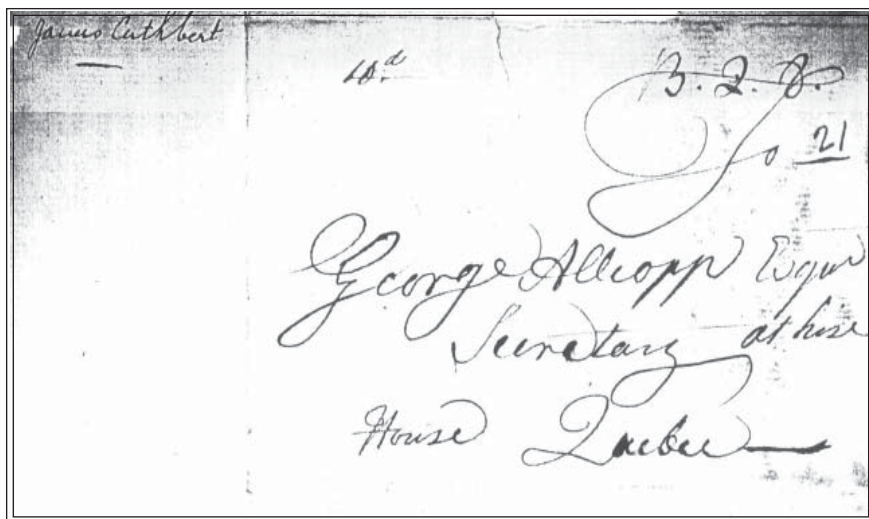 James Cuthbert
10.d
3. 2. 8.
To 21
George Allsopp Esqur
Secretary at hise
House Quebec